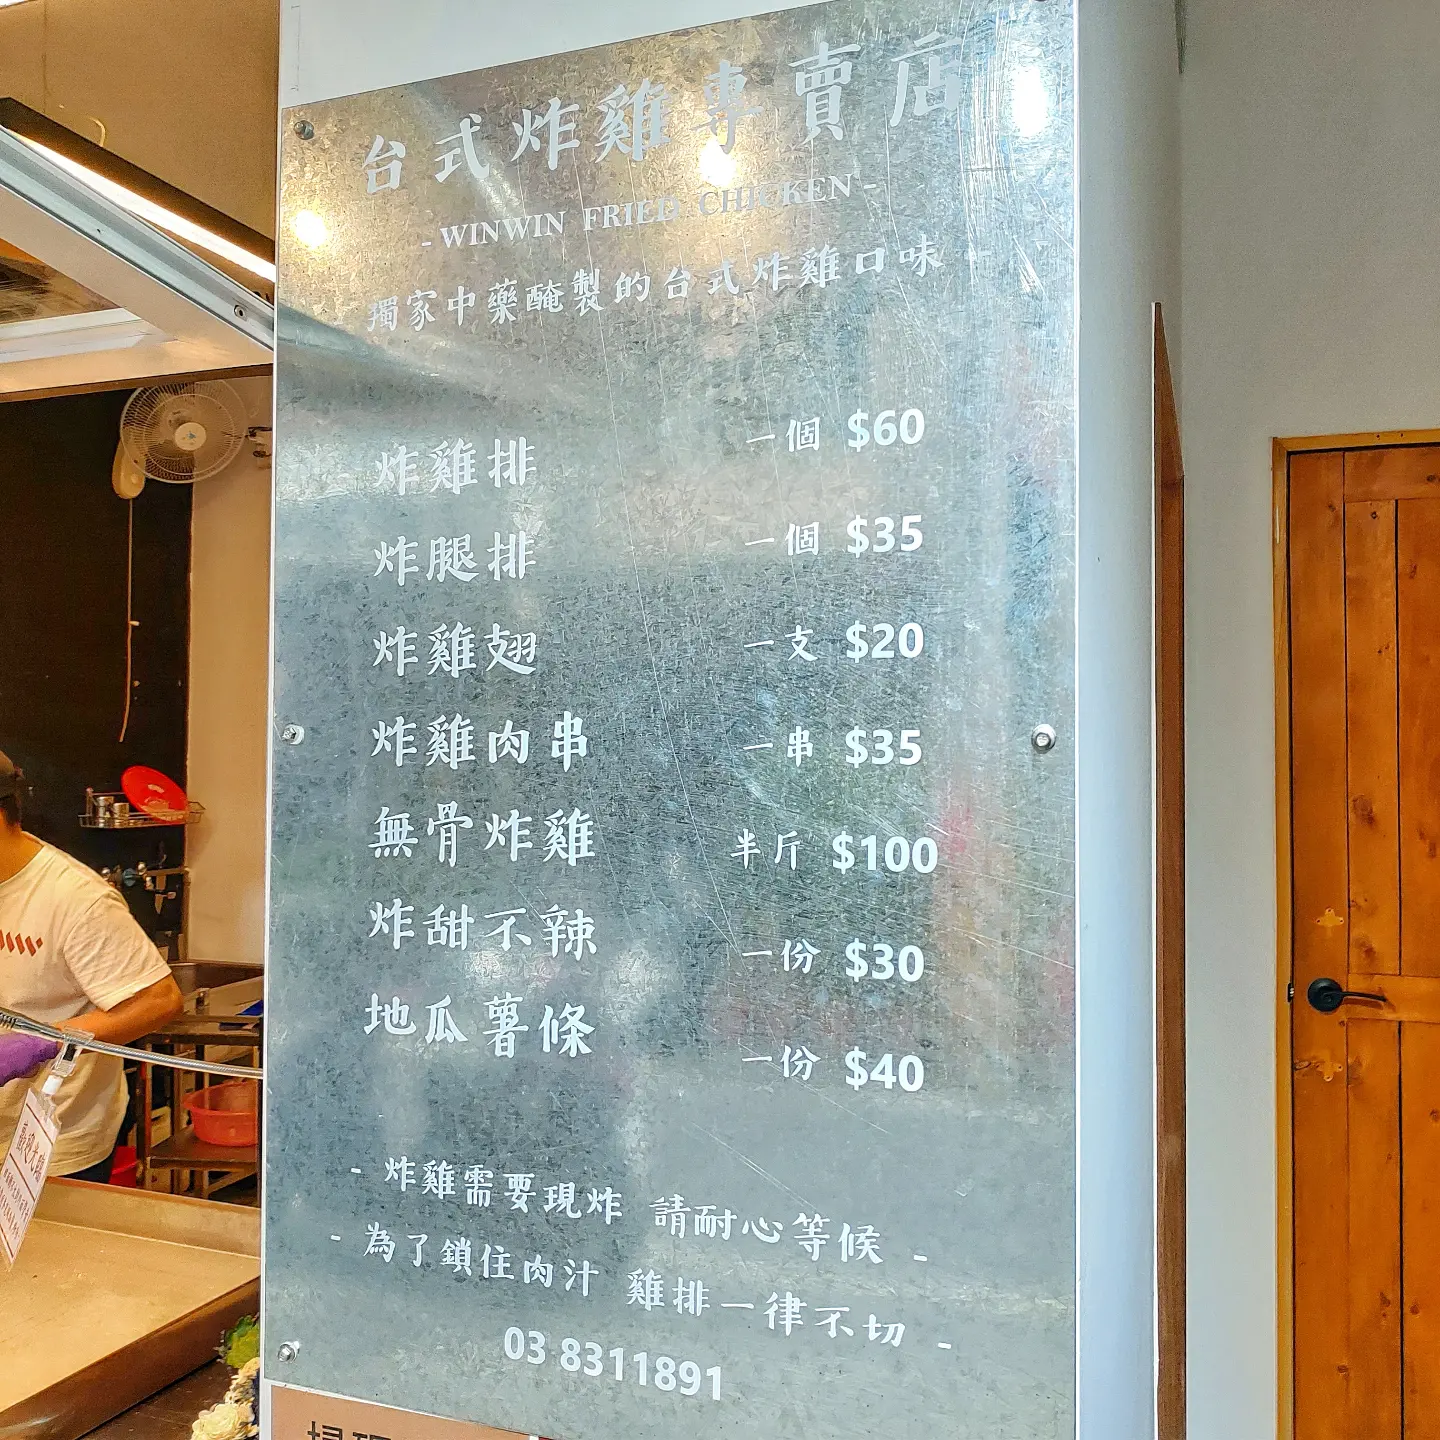 台式炸雞專賣店
- WINWIN FRIED CHICKEN -
獨家中藥醃製的台式炸雞口味 -
炸雞排 一個 $60
炸腿排 一個 $35
炸雞翅 一支 $20
炸雞肉串 一串 $35
無骨炸雞 半斤 $100
炸甜不辣 一份 $30
地瓜薯條 一份 $40
- 炸雞需要現炸 請耐心等候 -
- 為了鎖住肉汁 雞排一律不切 -
03 8311891